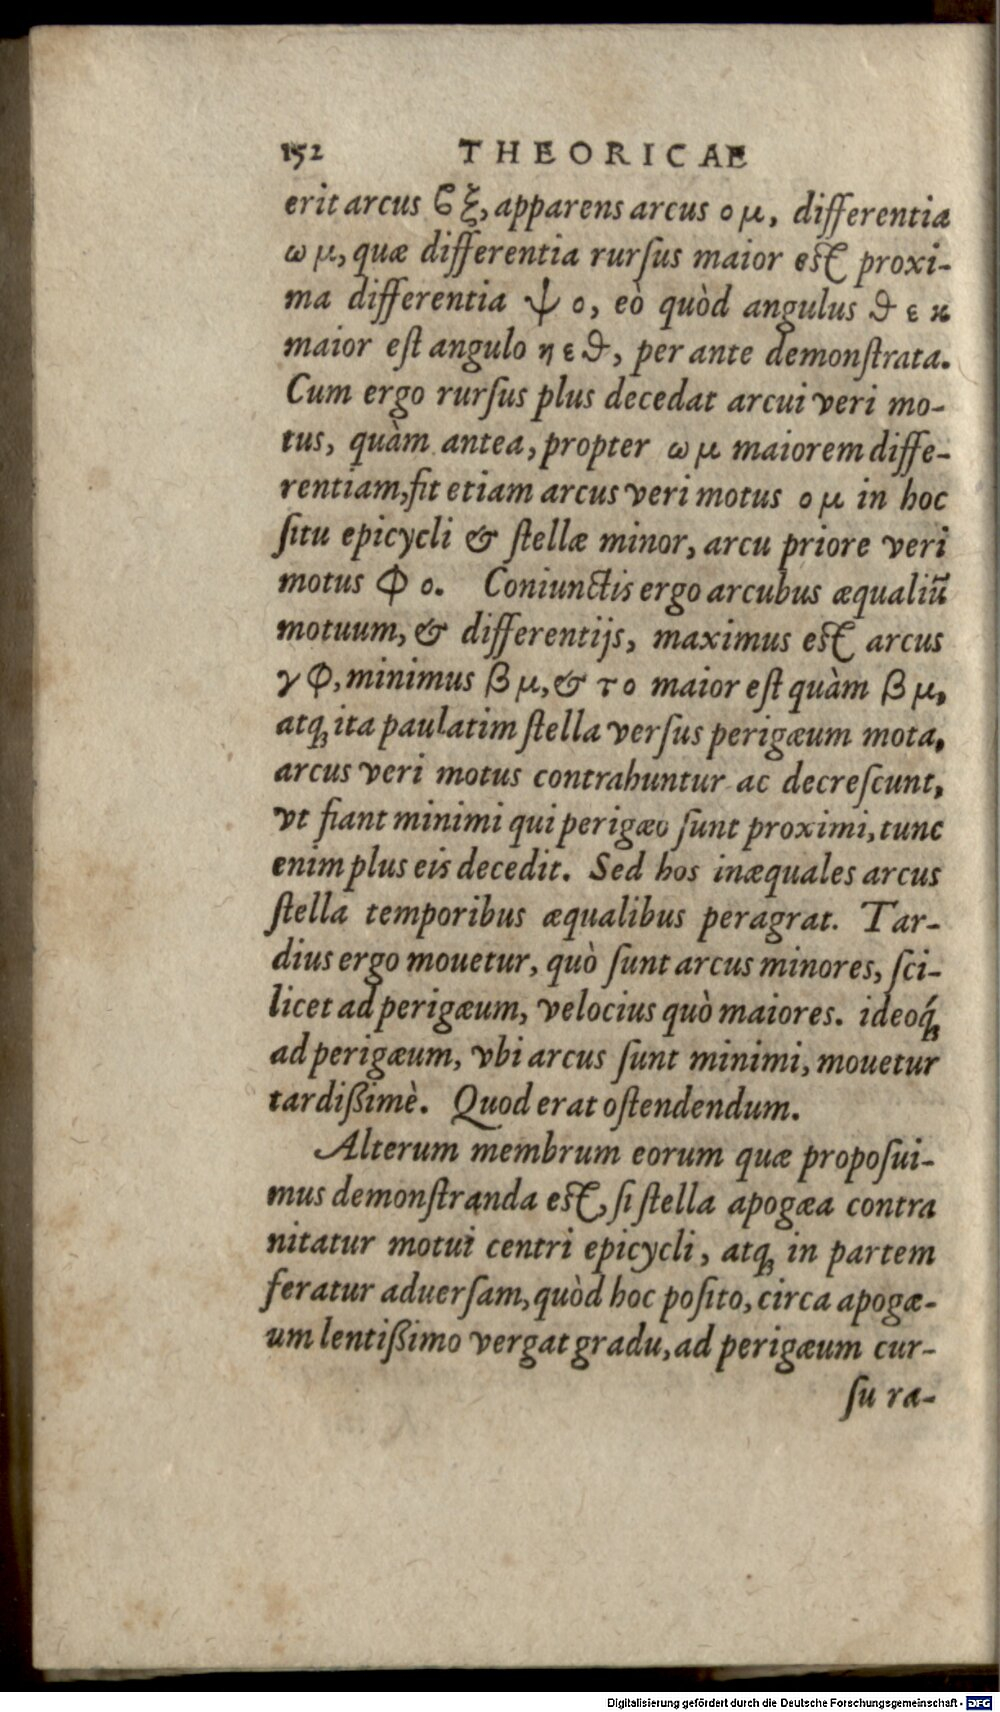 152 THEORICAE
erit arcus ϐ ξ, apparens arcus ο μ, differentia
ω μ, quæ differentia rurſus maior eſt proxi-
ma differentia ψ ο, eò quòd angulus ϑ ε ϰ
maior eſt angulo η ε ϑ, per ante demonſtrata.
Cum ergo rurſus plus decedat arcui veri mo-
tus, quàm antea, propter ω μ maiorem diffe-
rentiam, fit etiam arcus veri motus ο μ in hoc
ſitu epicycli & ſtellæ minor, arcu priore veri
motus Φ ο. Coniunctis ergo arcubus æqualiũ
motuum, & differentijs, maximus eſt arcus
γ Φ, minimus β μ, & τ ο maior eſt quàm β μ,
atq́; ita paulatim ſtella verſus perigæum mota,
arcus veri motus contrahuntur ac decreſcunt,
vt fiant minimi qui perigæo ſunt proximi, tunc
enim plus eis decedit. Sed hos inæquales arcus
ſtella temporibus æqualibus peragrat. Tar-
dius ergo mouetur, quò ſunt arcus minores, ſci-
licet ad perigæum, velocius quò maiores. ideoq́;
ad perigæum, vbi arcus ſunt minimi, mouetur
tardißimè. Quod erat oſtendendum.
Alterum membrum eorum quæ propoſui-
mus demonſtranda eſt, ſi ſtella apogæa contra
nitatur motui centri epicycli, atq; in partem
feratur aduerſam, quòd hoc poſito, circa apogæ-
um lentißimo vergat gradu, ad perigæum cur-
ſu ra-
Digitalisierung gefördert durch die Deutsche Forschungsgemeinschaft - DFG